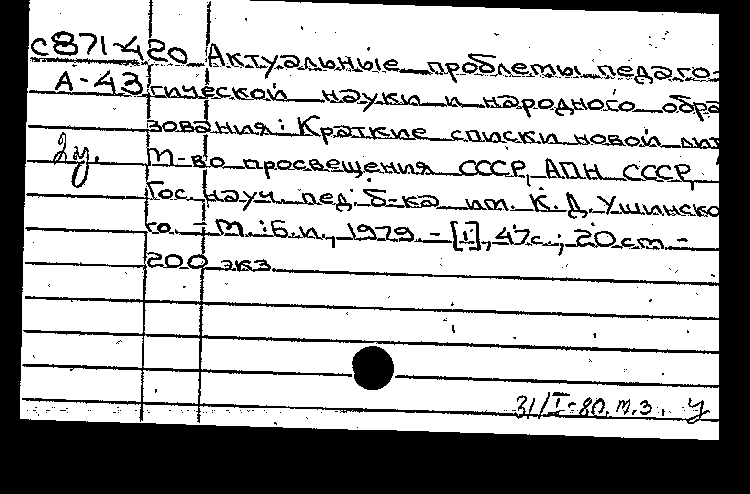 с871-420 Актуальные проблемы педаго-
А-43 гической науки и народного обра
зования: Краткие списки новой лит
2у. М-во просвещения СССР, АПН СССР,
Гос. науч. пед. б-ка им. К.Д. Ушинско
го. - М.: Б.и., 1979. - [1], 47с.; 20 см. -
200 экз.
31/I-80. т.з. У